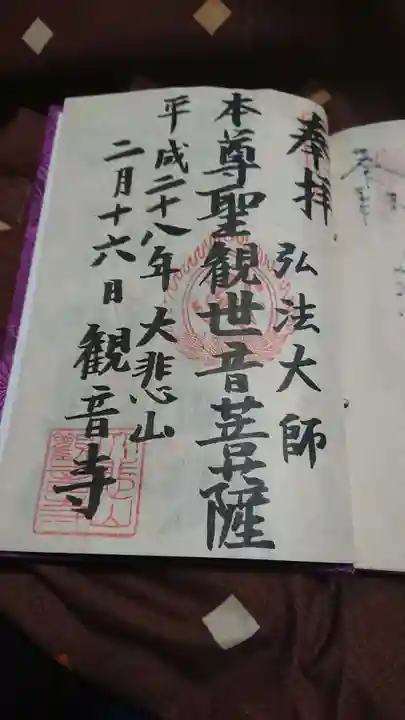 奉拝
弘法大師
本尊聖観世音菩薩
平成二十八年
大悲山
二月十六日
観音寺